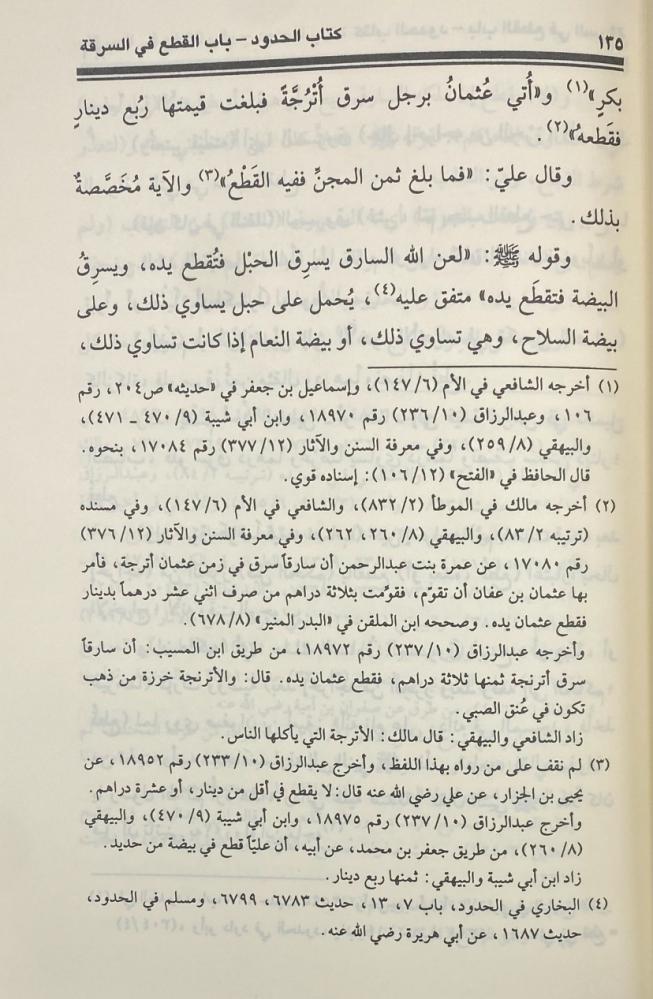 ١٣٥
كتاب الحدود - باب القطع في السرقة
بكرٍ»(١) و«أُتي عُثمانُ برجل سرق أُتْرُجَّةً فبلغت قيمتها رُبع دينارٍ
فقَطعهُ»(٢).
وقال عليّ: «فما بلغ ثمن المجنِّ ففيه القَطْعُ»(٣) والآية مُخَصَّصةٌ
بذلك.
وقوله ﷺ: «لعن الله السارق يسرِق الحبْل فتُقطع يده، ويسرِقُ
البيضة فتقطَع يده» متفق عليه(٤)، يُحمل على حبل يساوي ذلك، وعلى
بيضة السلاح، وهي تساوي ذلك، أو بيضة النعام إذا كانت تساوي ذلك،
(١) أخرجه الشافعي في الأم (١٤٧/٦)، وإسماعيل بن جعفر في «حديثه» ص٢٠٤، رقم
١٠٦، وعبدالرزاق (٢٣٦/١٠) رقم ١٨٩٧٠، وابن أبي شيبة (٤٧٠/٩ ـ ٤٧١)،
والبيهقي (٢٥٩/٨)، وفي معرفة السنن والآثار (٣٧٧/١٢) رقم ١٧٠٨٤، بنحوه.
قال الحافظ في «الفتح» (١٠٦/١٢): إسناده قوي.
(٢) أخرجه مالك في الموطأ (٨٣٢/٢)، والشافعي في الأم (١٤٧/٦)، وفي مسنده
(ترتيبه ٨٣/٢)، والبيهقي (٢٦٠/٨، ٢٦٢)، وفي معرفة السنن والآثار (٣٧٦/١٢)
رقم ١٧٠٨٠، عن عمرة بنت عبدالرحمن أن سارقاً سرق في زمن عثمان أترجة، فأمر
بها عثمان بن عفان أن تقوّم، فقوِّمت بثلاثة دراهم من صرف اثني عشر درهماً بدينار
فقطع عثمان يده. وصححه ابن الملقن في «البدر المنير» (٦٧٨/٨).
وأخرجه عبدالرزاق (٢٣٧/١٠) رقم ١٨٩٧٢، من طريق ابن المسيب: أن سارقاً
سرق أترنجة ثمنها ثلاثة دراهم، فقطع عثمان يده. قال: والأترنجة خرزة من ذهب
تكون في عُنق الصبي.
زاد الشافعي والبيهقي: قال مالك: الأترجة التي يأكلها الناس.
(٣) لم نقف على من رواه بهذا اللفظ، وأخرج عبدالرزاق (٢٣٣/١٠) رقم ١٨٩٥٢، عن
يحيى بن الجزار، عن علي رضي الله عنه قال: لا يقطع في أقل من دينار، أو عشرة دراهم.
وأخرج عبدالرزاق (٢٣٧/١٠) رقم ١٨٩٧٥، وابن أبي شيبة (٤٧٠/٩)، والبيهقي
(٢٦٠/٨)، من طريق جعفر بن محمد، عن أبيه، أن عليّاً قطع في بيضة من حديد.
زاد ابن أبي شيبة والبيهقي: ثمنها ربع دينار.
(٤) البخاري في الحدود، باب ٧، ١٣، حديث ٦٧٨٣، ٦٧٩٩، ومسلم في الحدود،
حديث ١٦٨٧، عن أبي هريرة رضي الله عنه.